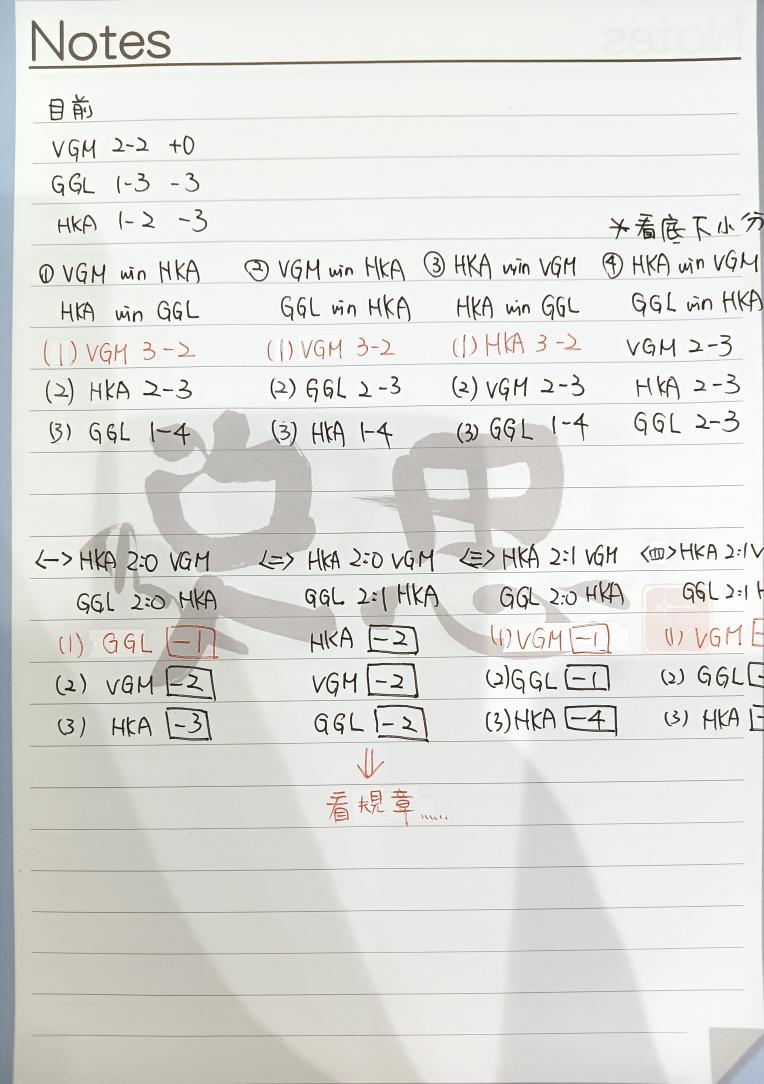 Notes
目前
VGM 2-2 +0
GGL 1-3 -3
HKA 1-2 -3
*看底下小分
① VGM win HKA
HKA win GGL
(1) VGM 3-2
(2) HKA 2-3
(3) GGL 1-4
② VGM win HKA
GGL win HKA
(1) VGM 3-2
(2) GGL 2-3
(3) HKA 1-4
③ HKA win VGM
HKA win GGL
(1) HKA 3-2
(2) VGM 2-3
(3) GGL 1-4
④ HKA win VGM
GGL win HKA
VGM 2-3
HKA 2-3
GGL 2-3
<一> HKA 2:0 VGM
GGL 2:0 HKA
(1) GGL -1
(2) VGM -2
(3) HKA -3
<二> HKA 2:0 VGM
GGL 2:1 HKA
HKA -2
VGM -2
GGL -2
看規章......
<三> HKA 2:1 VGM
GGL 2:0 HKA
(1) VGM -1
(2) GGL -1
(3) HKA -4
<四> HKA 2:1 V
GGL 2:1 H
(1) VGM
(2) GGL
(3) HKA